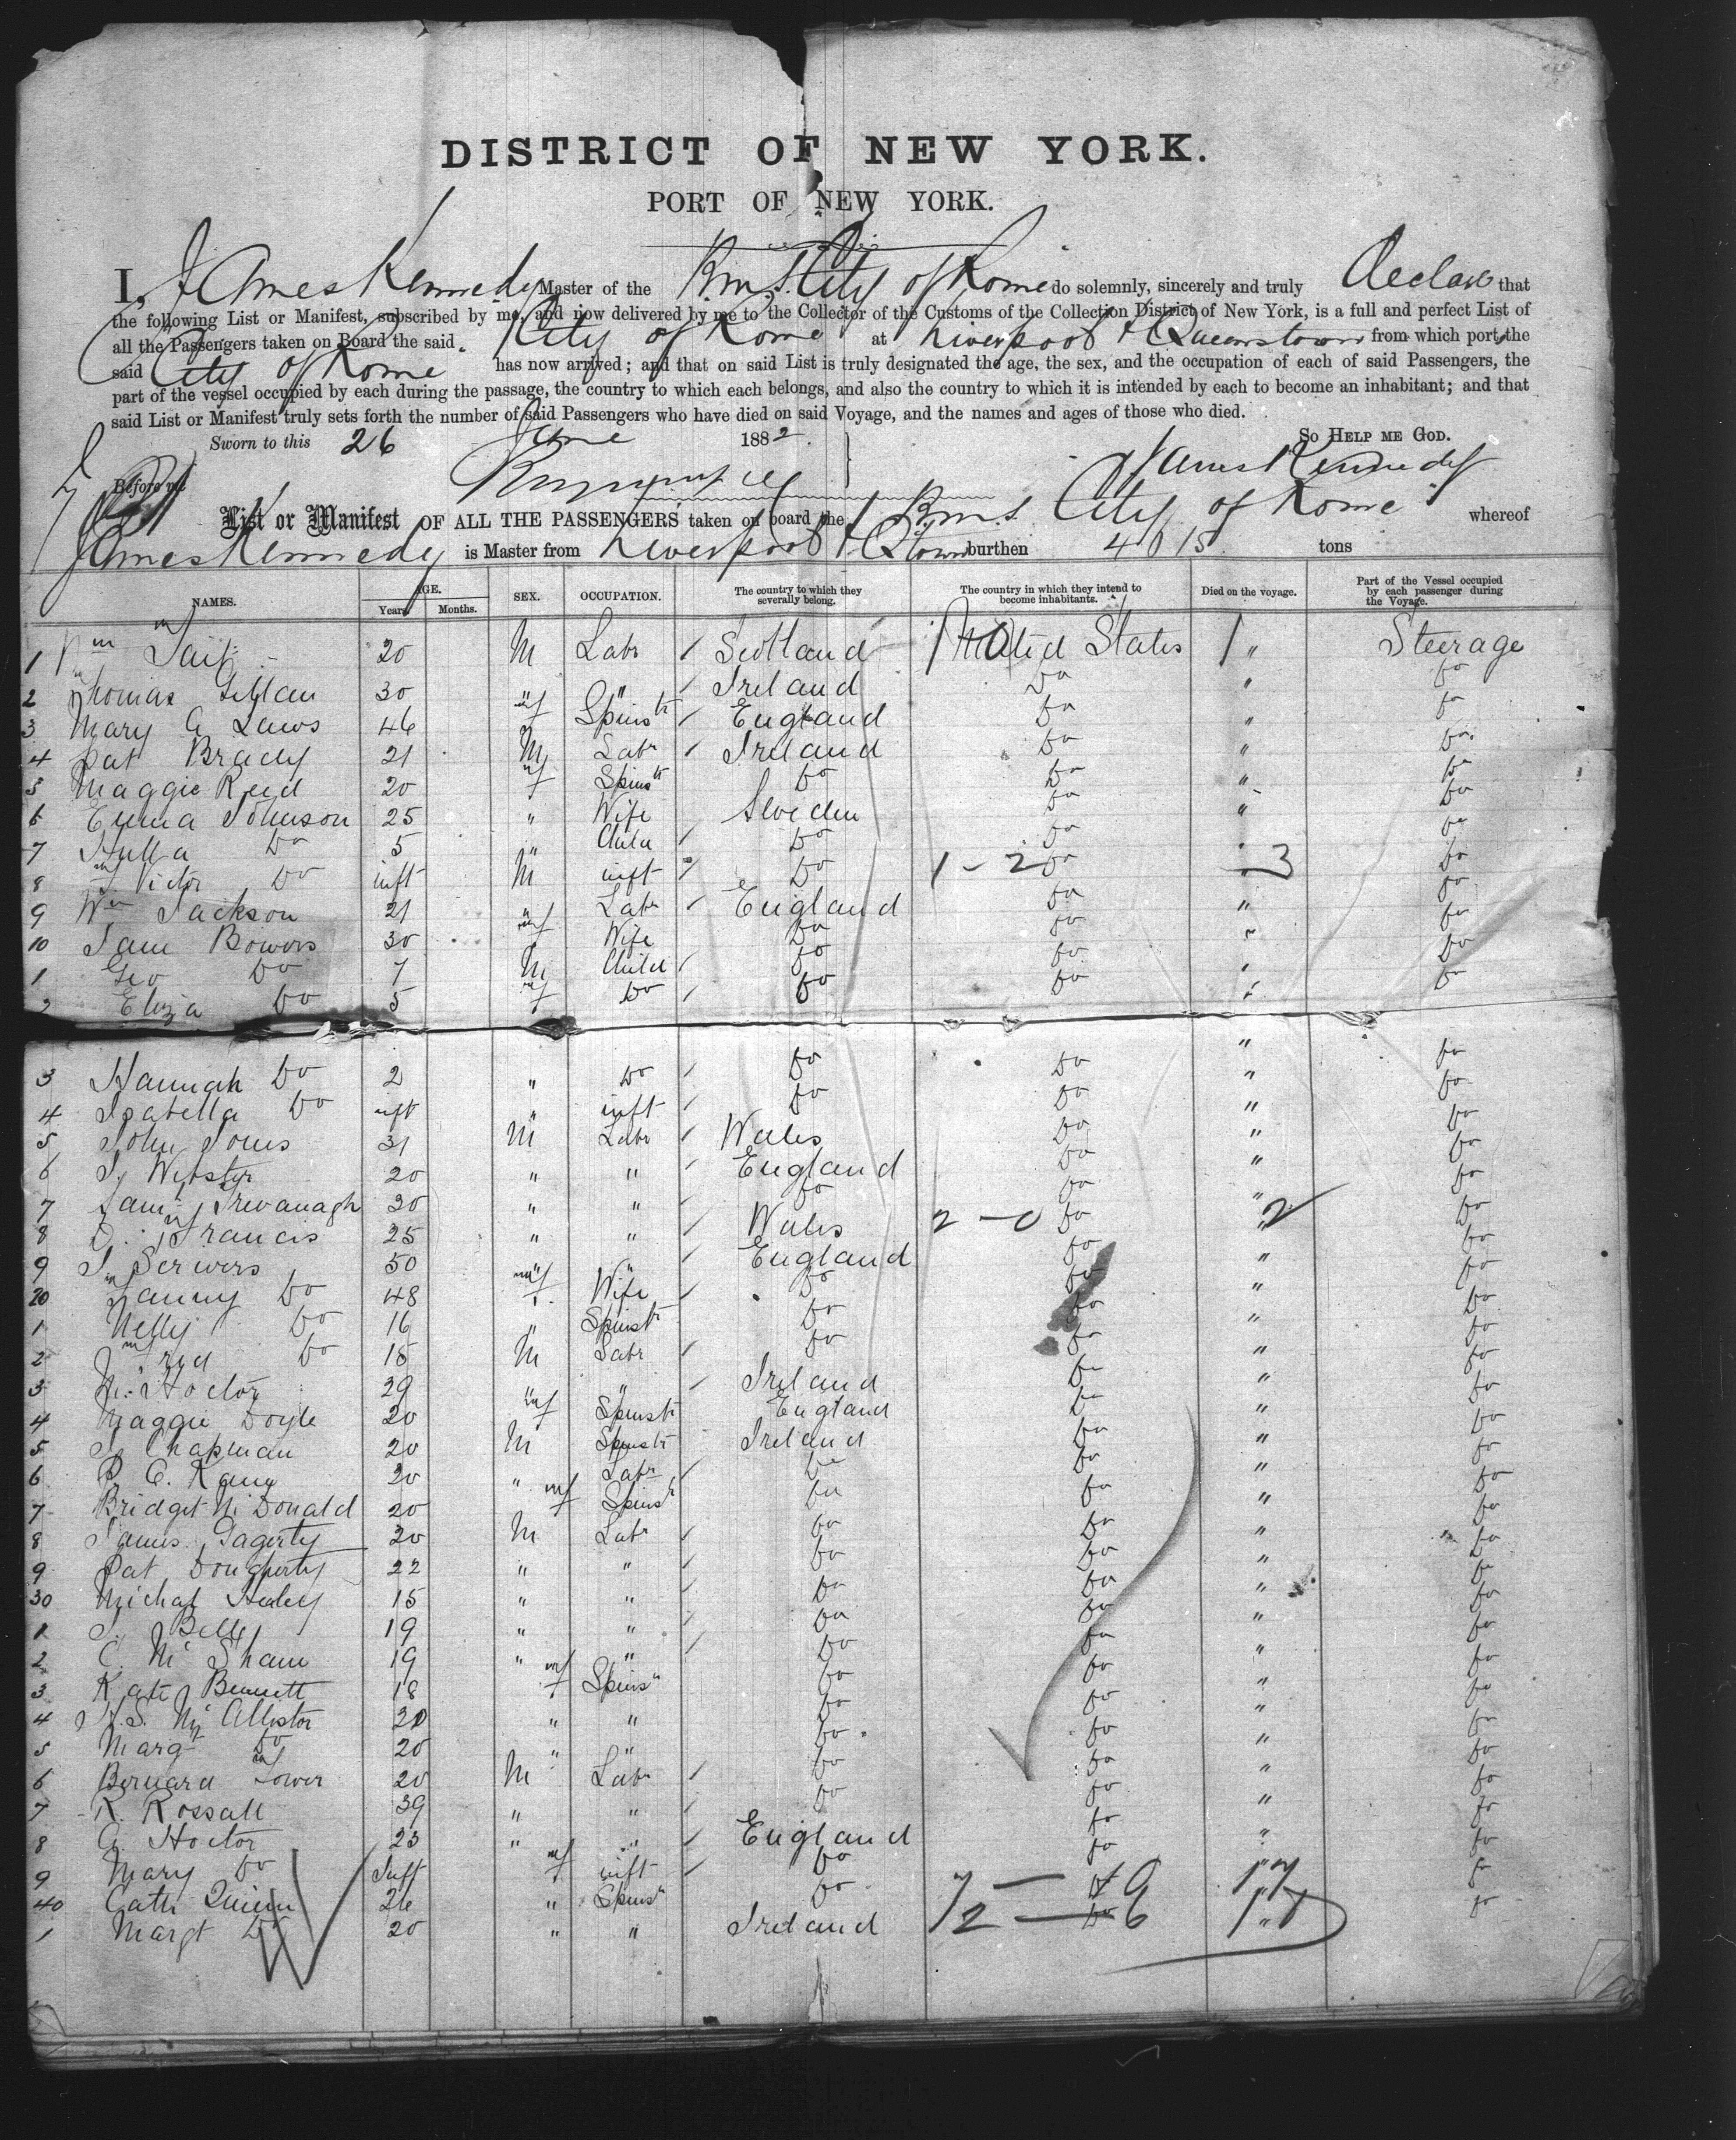 DISTRICT OF NEW YORK.
PORT OF NEW YORK.
I, James Kennedy Master of the R.M.S. City of Rome do solemnly, sincerely and truly declare that
the following List or Manifest, subscribed by me, and now delivered by me to the Collector of the Customs of the Collection District of New York, is a full and perfect List of
all the Passengers taken on Board the said City of Rome at Liverpool & Queenstown from which port the
said City of Rome has now arrived; and that on said List is truly designated the age, the sex, and the occupation of each of said Passengers, the
part of the vessel occupied by each during the passage, the country to which each belongs, and also the country to which it is intended by each to become an inhabitant; and that
said List or Manifest truly sets forth the number of said Passengers who have died on said Voyage, and the names and ages of those who died.
Sworn to this 26 June 1882. So Help me God.
Before me James Kennedy
List or Manifest OF ALL THE PASSENGERS taken on board the R.M.S. City of Rome whereof
James Kennedy is Master from Liverpool & Qtown burthen 4015 tons
NAMES. AGE. Years. Months. SEX. OCCUPATION. The country to which they severally belong. The country in which they intend to become inhabitants. Died on the voyage. Part of the Vessel occupied by each passenger during the Voyage.
1 Wm Tait 20 M Labr / Scotland United States " Steerage
2 Thomas 30 " " / Ireland Do " Do
3 Mary A Laws 46 f Spinstr / England Do " Do
4 Pat Brady 21 M Labr / Ireland Do " Do
5 Maggie Reid 20 f Spinstr Do Do " Do
6 Emma Johnson 25 " Wife Sweden Do " Do
7 Do 5 " Child / Do Do " Do
8 Victor Do inft M inft / Do 1 - 2 Do 3 Do
9 Wm Jackson 21 " Labr / England Do " Do
10 Jane Bowers 30 f Wife Do Do " Do
1 Geo Do 7 M Child / Do Do " Do
2 Eliza Do 5 f Do / Do Do " Do
3 Hannah Do 2 " Do / Do Do " Do
4 Isabella Do inft " inft / Do Do " Do
5 John Jones 31 M Labr / Wales Do " Do
6 J. Webster 20 " " / England Do " Do
7 Trevanagh 30 " " / Do Do " Do
8 Francis 25 " " / Wales 2 - 0 Do 2 Do
9 50 " " / England Do " Do
20 Fanny Do 48 f Wife / Do Do " Do
1 Nelly Do 16 " Spinstr Do Do " Do
2 Fred Do 15 M Labr / Do Do " Do
3 Hoctor 29 " " / Ireland Do " Do
4 Maggie Doyle 20 f Spinstr England Do " Do
5 Chapman 20 M Spinstr Ireland Do " Do
6 Kane 20 " Labr / Do Do " Do
7 Bridget McDonald 20 f Spinstr Do Do " Do
8 James 20 M Labr / Do Do " Do
9 Pat Dougherty 22 " " / Do Do " Do
30 Michal Healey 15 " " / Do Do " Do
1 Bell 19 " " / Do Do " Do
2 C. Mc Shane 19 " " / Do Do " Do
3 Kate Bennett 18 f Spinsr Do Do " Do
4 Mc Allistor " " Do Do " Do
5 Margt Do 20 " " Do Do " Do
6 Bernard 20 M Labr / Do Do " Do
7 R. Rossall 39 " " / Do Do " Do
8 Hoctor 23 " " / England Do " Do
9 Mary Do Inft f inft / Do Do " Do
40 Cath Quinn 26 " Spinsr Do Do 17 Do
1 Margt Do 20 " " Ireland Do " Do